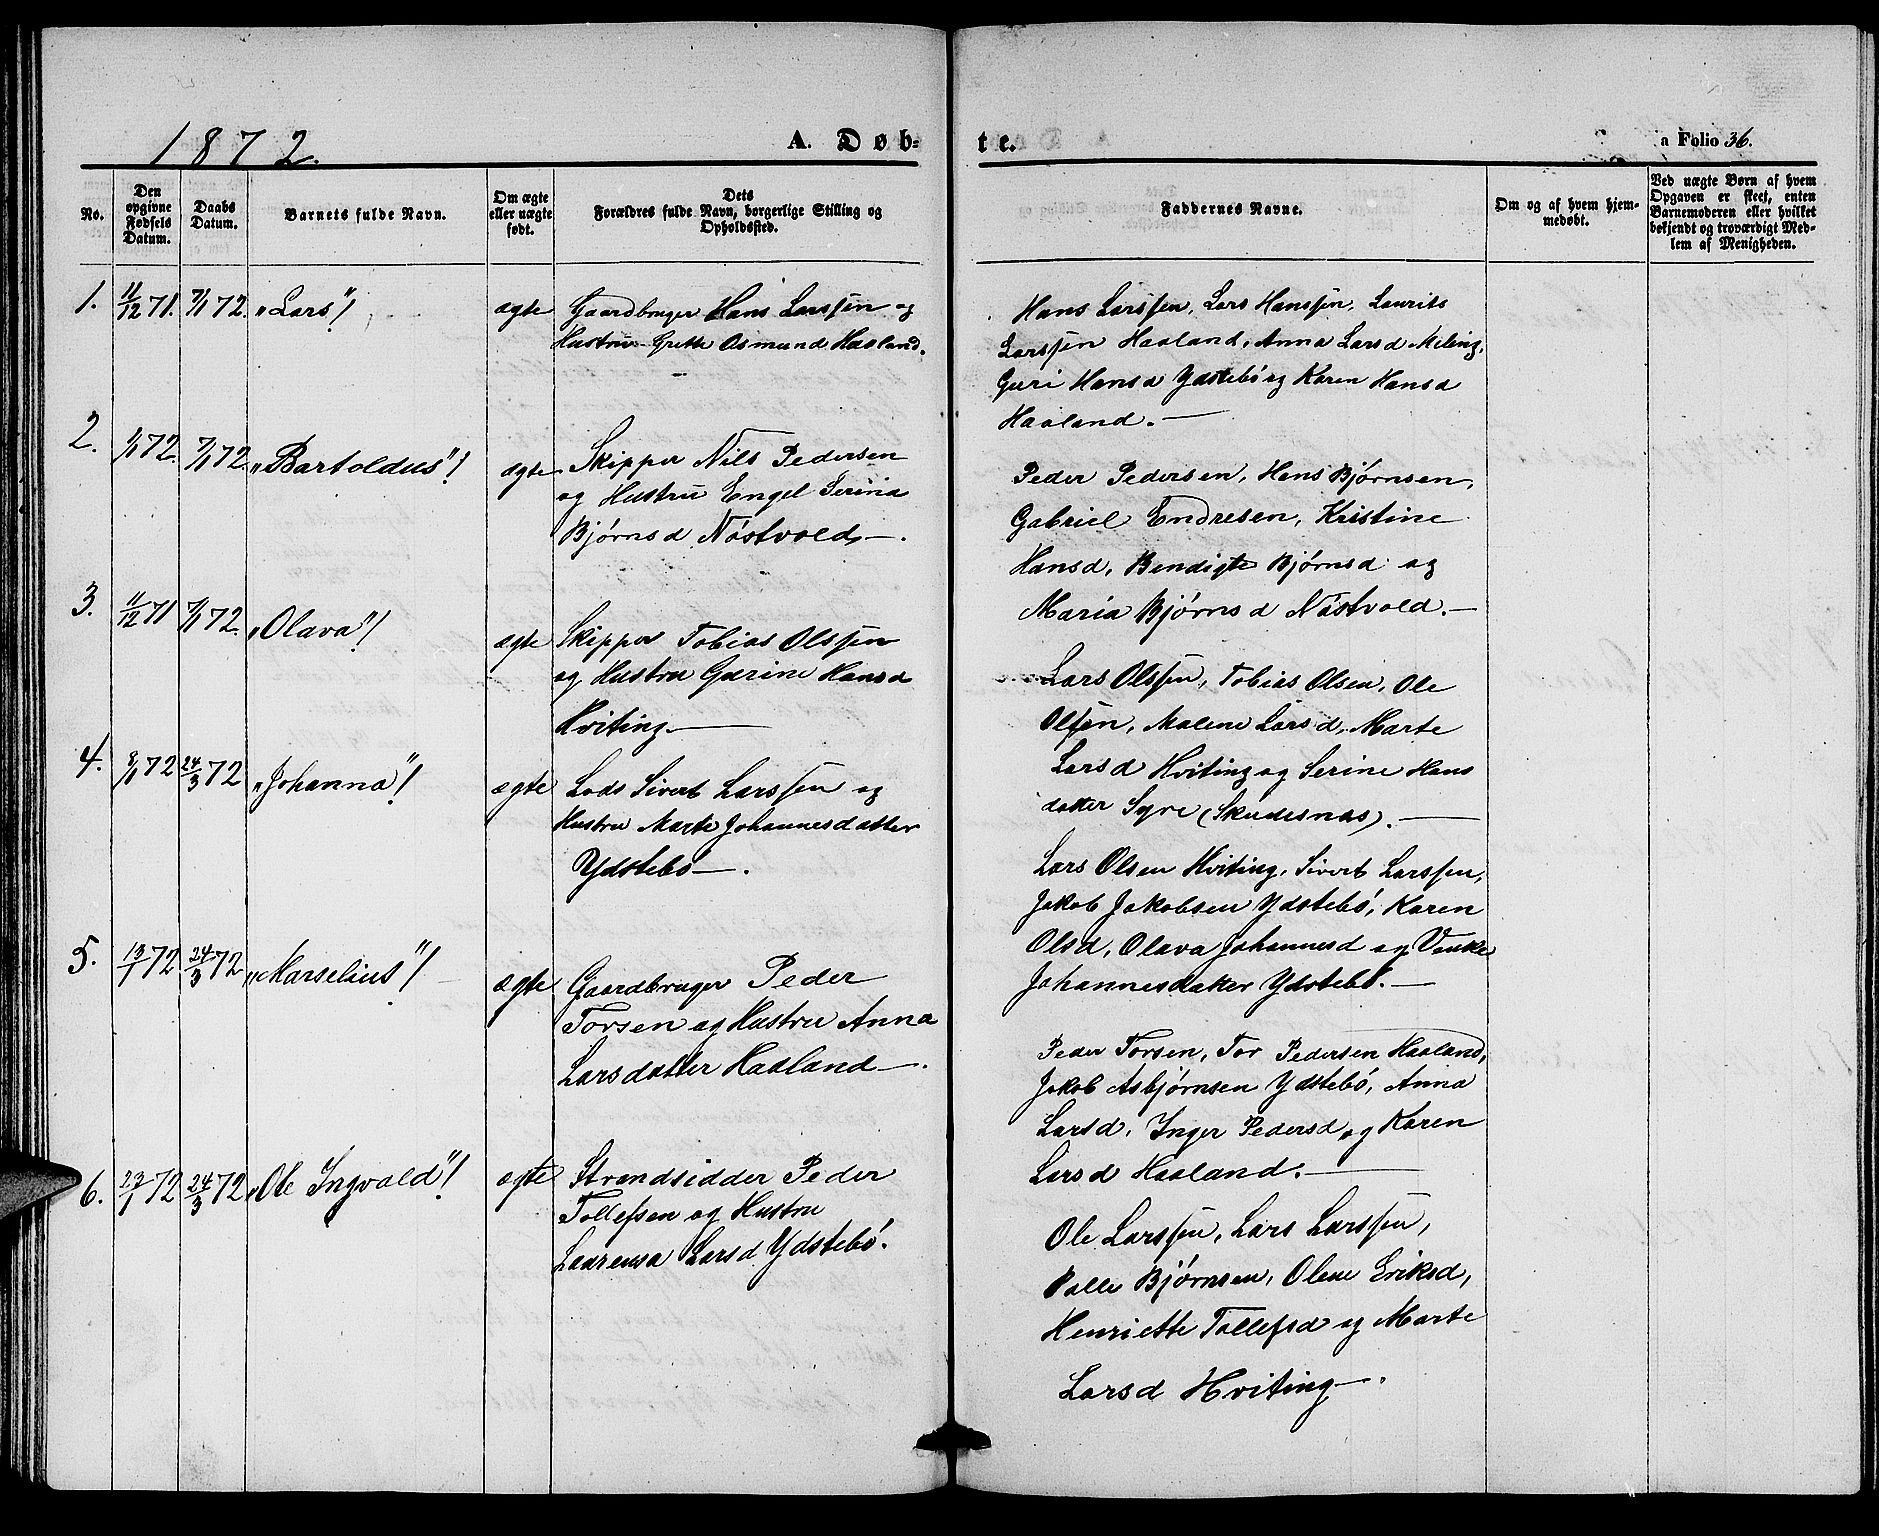 1872.
A. Døb-
te.
a Folio 36.
No.
Den
opgivne
Fødsels
Datum.
Daabs
Datum.
Barnets fulde Navn.
Om ægte
eller uægte
født.
Dets
Forældres fulde Navn, borgerlige Stilling og
Opholdssted.
Faddernes Navne.
Om og af hvem hjem-
medøbt.
Ved uægte Børn af hvem
Opgaven er skeet, enten
Barnemoderen eller hvilket
bekjendt og troværdigt Med-
lem af Menigheden.
1. 11/12 71. 7/1 72. "Lars"! ægte
Gaardbruger Hans Larssen og
Hustru Grethe Osmund Haaland.
Hans Larssen, Lars Hanssen, Laurits
Larssen Haaland, Anna Larsd Meling,
Guri Hansd Ydstebö og Karen Hansd
Haaland.
2. 1/1 72. 7/1 72. "Bartoldus"! ægte
Skipper Nils Pedersen
og Hustru Engel Serina
Bjørnsd Nöstvold.
Peder Pedersen, Hans Bjørnsen,
Gabriel Endresen, Kristine
Hansd, Bendigte Bjørnsd og
Maria Bjørnsd Nöstvold.
3. 11/12 71 7/1 72. "Olava"! ægte
Skipper Tobias Olssen
og Hustru Gurine Hansd
Hviting.
Lars Olssen, Tobias Olsen, Ole
Olssen, Malene Larsd, Marte
Larsd Hviting og Serine Hans
datter Syre (Skudesnæs).
4. 8/1 72 24/3 72 "Johanna"! ægte
Lods Sivert Larssen og
Hustru Marte Johannesdatter
Ydstebö.
Lars Olsen Hviting, Sivert Larssen,
Jakob Jakobsen Ydstebö, Karen
Olsd, Olava Johannesd og Venke
Johannesdatter Ydstebö.
5. 13/1 72 24/3 72 "Marselius"! ægte
Gaardbruger Peder
Torsen og Hustru Anna
Larsdatter Haaland.
Peder Torsen, Tor Pedersen Haaland,
Jakob Asbjørnsen Ydstebö, Anna
Larsd, Inger Pedersd og Karen
Larsd Haaland.
6. 22/1 72 24/3 72 "Ole Ingvald"! ægte
Strandsidder Peder
Tollefsen og Hustru
Laurensa Larsd Ydstebö.
Ole Larssen, Lars Larssen,
Palle Bjørnsen, Olene Eriksd,
Henriette Tollefsd og Marte
Larsd Hviting.